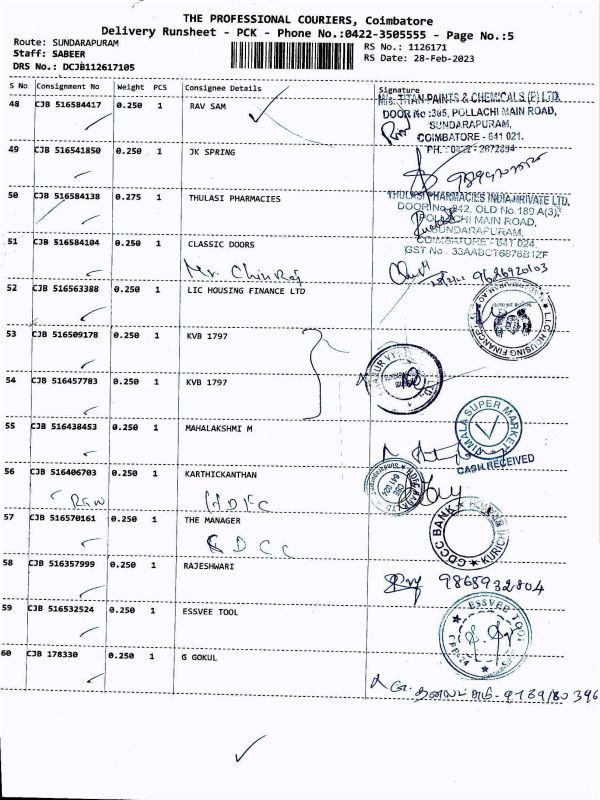 THE PROFESSIONAL COURIERS, Coimbatore
Delivery Runsheet - PCK - Phone No.:0422-3505555 - Page No.:5
Route: SUNDARAPURAM
Staff: SABEER
DRS No.: DCJB112617105
RS No.: 1126171
RS Date: 28-Feb-2023
S No Consignment No Weight PCS Consignee Details Signature
48 CJB 516584417 0.250 1 RAV SAM
M/s. TITAN PAINTS & CHEMICALS (P) LTD.
DOOR No :395, POLLACHI MAIN ROAD,
SUNDARAPURAM,
COIMBATORE - 641 021.
PH. : 0422 - 2672894
49 CJB 516541850 0.250 1 JK SPRING
50 CJB 516584138 0.275 1 THULASI PHARMACIES
THULASI PHARMACIES INDIA PRIVATE LTD,
DOOR No. 242, OLD No.189 A(3),
POLLACHI MAIN ROAD,
SUNDARAPURAM,
COIMBATORE - 641 024.
GST No : 33AABCT6876B1ZF
51 CJB 516584104 0.250 1 CLASSIC DOORS
Mr. Chinraj
9626920103
52 CJB 516563388 0.250 1 LIC HOUSING FINANCE LTD
53 CJB 516509178 0.250 1 KVB 1797
54 CJB 516457783 0.250 1 KVB 1797
55 CJB 516438453 0.250 1 MAHALAKSHMI M
VIMALA SUPER MARKET
CASH RECEIVED
56 CJB 516406703 0.250 1 KARTHICKANTHAN
HDFC
57 CJB 516570161 0.250 1 THE MANAGER
CDCC
CDCC BANK
KURICHI
58 CJB 516357999 0.250 1 RAJESHWARI
9865932804
59 CJB 516532524 0.250 1 ESSVEE TOOL
ESSVEE TOOL
60 CJB 178330 0.250 1 G GOKUL